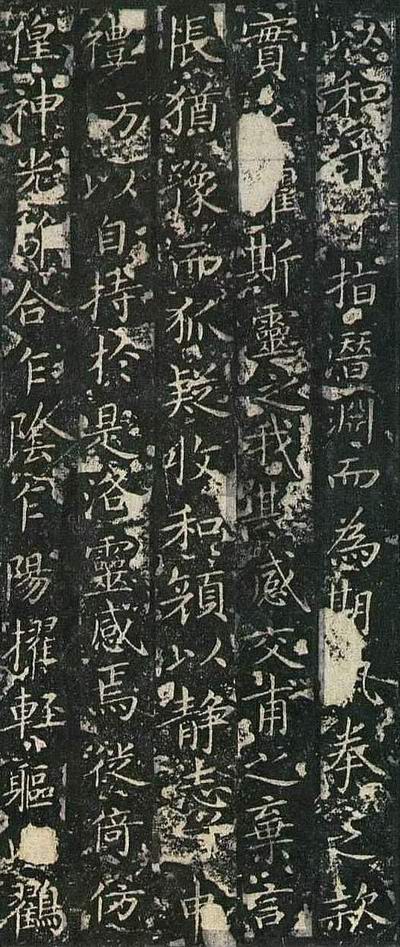 以和予兮指潛淵而為期執拳之款
實兮懼斯靈之我欺感交甫之棄言
悵猶豫而狐疑收和顏以靜志兮申
禮方以自持於是洛靈感焉徙倚仿
偟神光離合乍陰乍陽擢輕軀以鸖